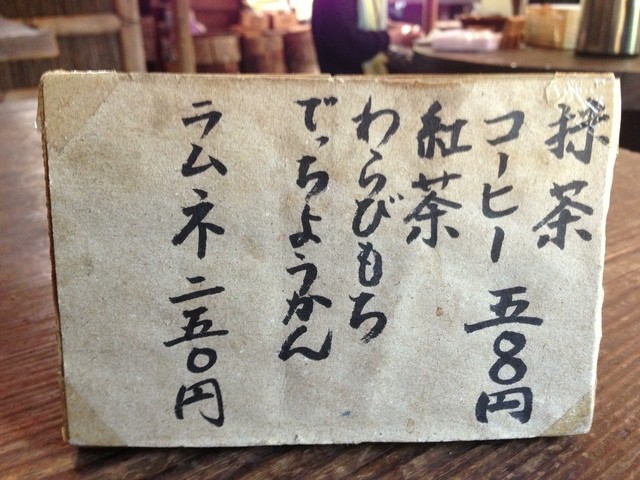 抹茶
コーヒー 五〇〇円
紅茶
わらびもち
でっちようかん
ラムネ 二五〇円